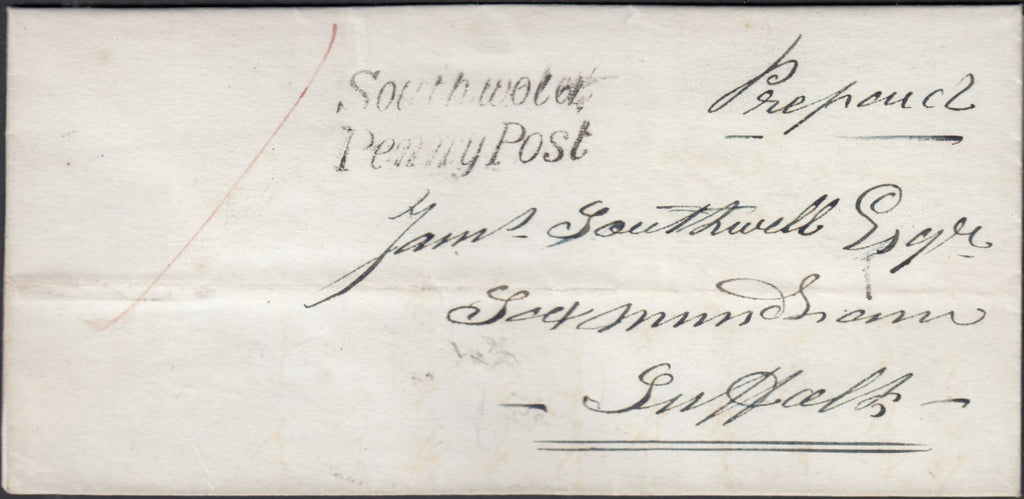 Southwold
Penny Post
Prepaid
Jams. Southwell Esqr
Saxmundham
- Suffolk -